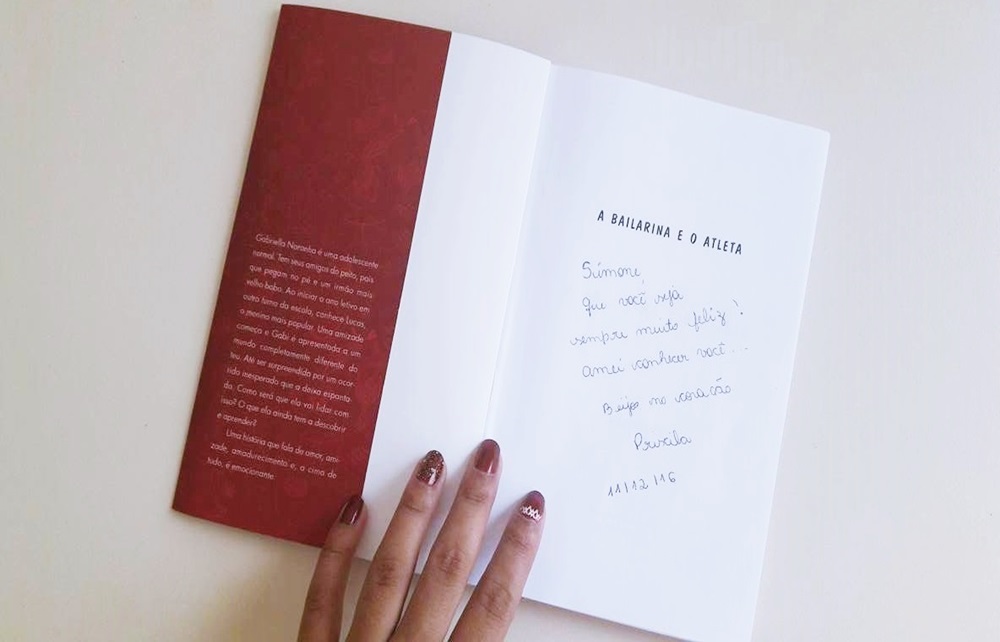 Gabriella Noronha é uma adolescente
normal. Tem seus amigos do peito, pais
que pegam no pé e um irmão mais
velho babo. Ao iniciar o ano letivo em
outra turma da escola, conhece Lucas,
o menino mais popular. Uma amizade
começa e Gabi é apresentada a um
mundo completamente diferente do
seu. Até ser surpreendida por um acor-
rido inesperado que a deixa espanta-
da. Como será que ela vai lidar com
isso? O que ela ainda tem a descobrir
e aprender?
Uma história que fala de amor, ami-
zade, amadurecimento e, a cima de
tudo, é emocionante.
A BAILARINA E O ATLETA
Simone,
Que você seja
sempre muito feliz!
amei conhecer você...
Beijo no coração
Priscila
11/12/16